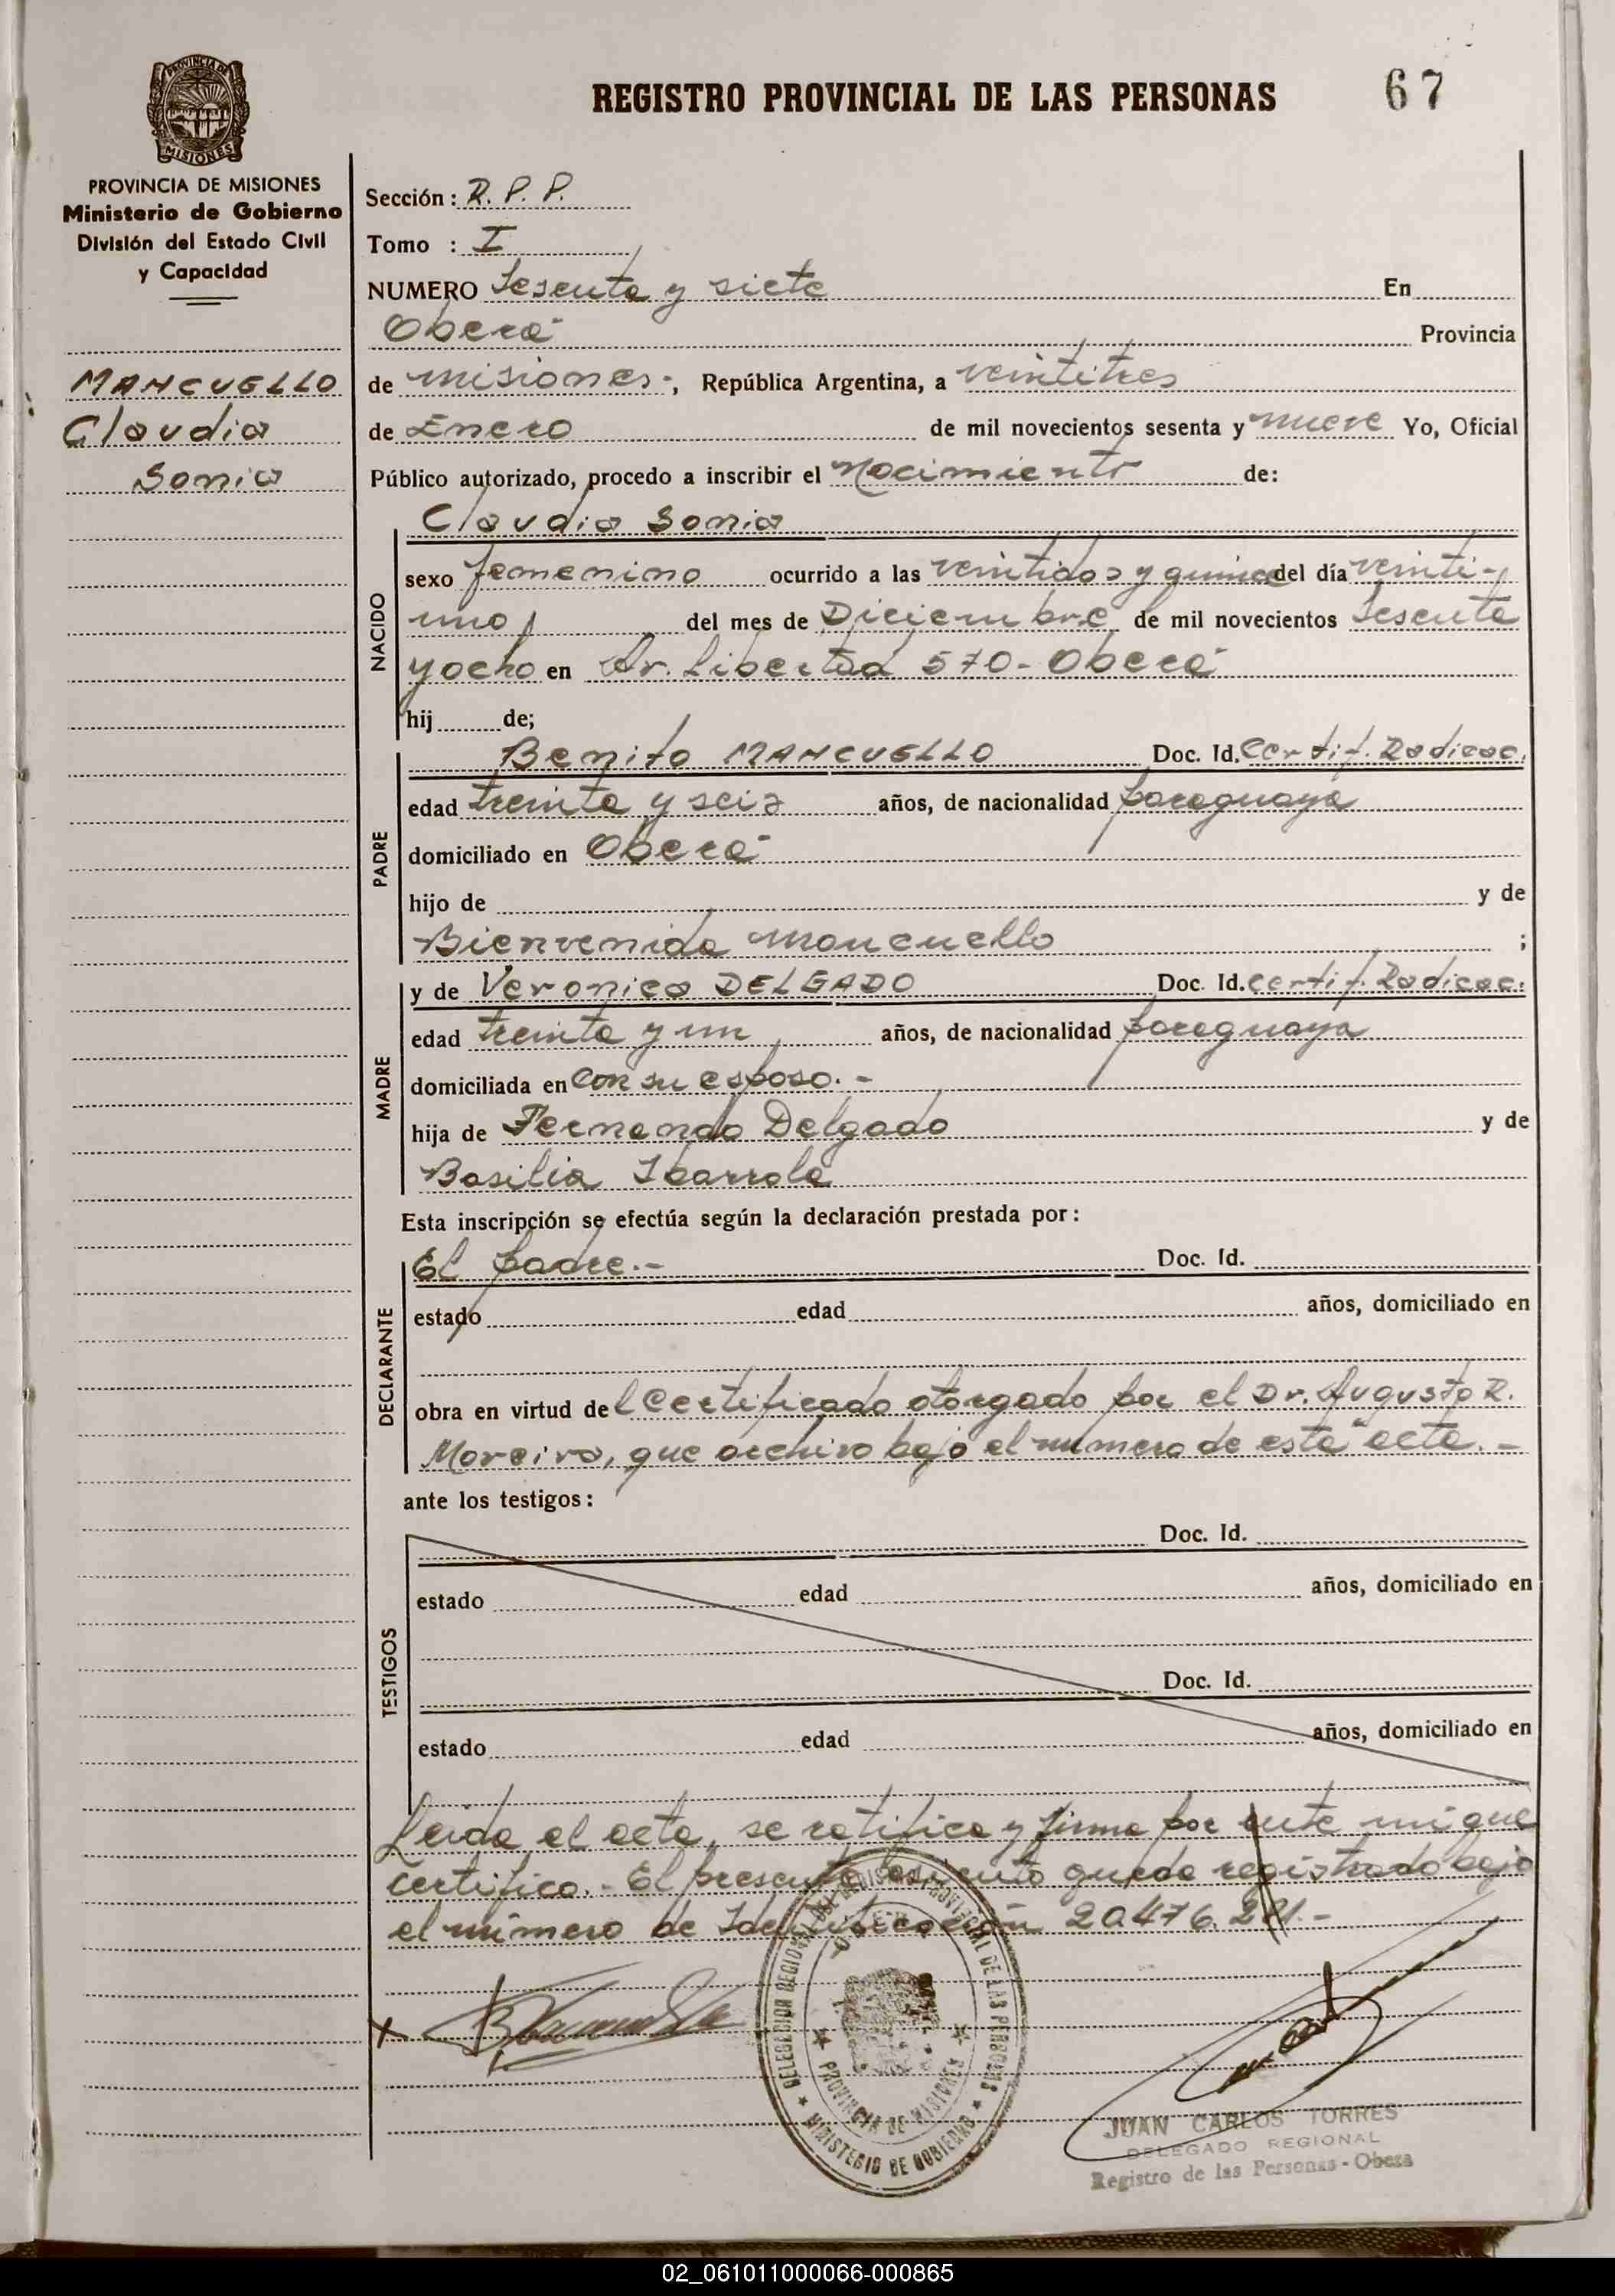 REGISTRO PROVINCIAL DE LAS PERSONAS
67
PROVINCIA DE
MISIONES
PROVINCIA DE MISIONES
Ministerio de Gobierno
División del Estado Civil
y Capacidad
MANCUELLO
Claudia
Sonia
Sección: R. P. P.
Tomo : I
NUMERO Sesenta y siete En
Oberá Provincia
de misiones-, República Argentina, a veintitres
de Enero de mil novecientos sesenta y nueve Yo, Oficial
Público autorizado, procedo a inscribir el nacimiento de:
Claudia Sonia
NACIDO
sexo femenino ocurrido a las veintidos y quince del día veinti-
uno del mes de Diciembre de mil novecientos sesenta
y ocho en Av. Libertad 570- Oberá
hij de;
PADRE
Benito MANCUELLO Doc. Id. Certif. Radicac.
edad treinta y seis años, de nacionalidad paraguaya
domiciliado en Oberá
hijo de y de
Bienvenida mancuello ;
MADRE
y de Veronica DELGADO Doc. Id. Certif. Radicac.
edad treinta y un años, de nacionalidad paraguaya
domiciliada en con su esposo.-
hija de Fernando Delgado y de
Basilia Ibarrola
Esta inscripción se efectúa según la declaración prestada por:
DECLARANTE
El padre.- Doc. Id.
estado edad años, domiciliado en
obra en virtud del Certificado otorgado por el Dr. Augusto R.
Moreira, que archivo bajo el numero de esta acta.-
ante los testigos:
TESTIGOS
Doc. Id.
estado edad años, domiciliado en
Doc. Id.
estado edad años, domiciliado en
Leida el acta, se ratifica y firma por ante mi que
certifico.- El presente asiento queda registrado bajo
el número de Identificación 20.476.
DELEGACION REGIONAL DEL REGISTRO PROVINCIAL DE LAS PERSONAS
PROVINCIA DE MISIONES
MINISTERIO DE GOBIERNO
JUAN CARLOS TORRES
DELEGADO REGIONAL
Registro de las Personas - Obera
02_061011000066-000865